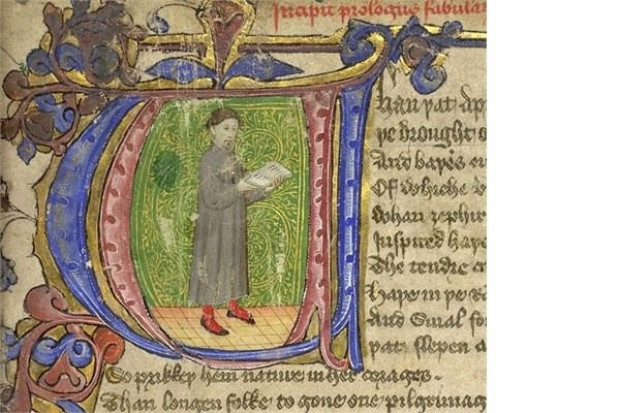 Incipit prologus fabular
Whan þat apr
þe drought o
And baþes eu
Of whiche v
Whan zephir
Inspired haþe
The tendre cr
Haþe in þe R
And Smal fo
þat slepen a
So prikkeþ hem nature in her corages.
Than longen folke to gone one pilgrimag